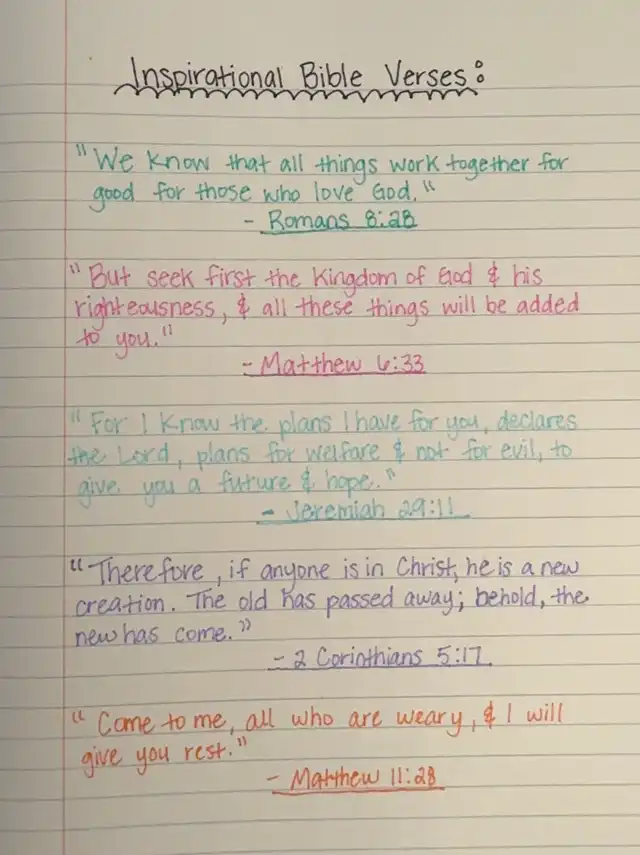 Inspirational Bible Verses:
"We know that all things work together for
good for those who love God."
- Romans 8:28
"But seek first the kingdom of God & his
righteousness, & all these things will be added
to you."
- Matthew 6:33
"For I know the plans I have for you, declares
the Lord, plans for welfare & not for evil, to
give you a future & hope."
- Jeremiah 29:11
"Therefore, if anyone is in Christ, he is a new
creation. The old has passed away; behold, the
new has come."
- 2 Corinthians 5:17
"Come to me, all who are weary, & I will
give you rest."
- Matthew 11:28